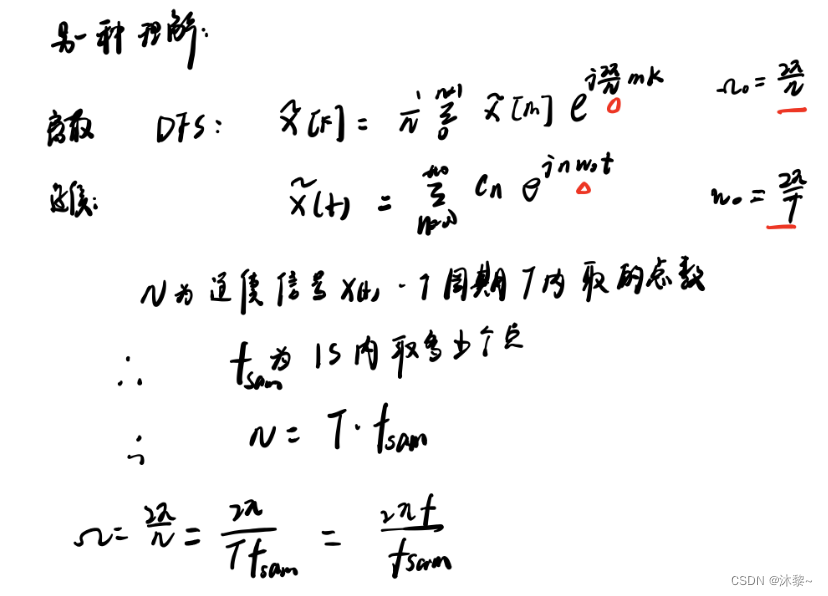 另一种理解:
离散 DFS: x̃[k] = 1/N Σ_0^{N-1} x̃[m] e^{j 2π/N mk} Ω₀ = 2π/N
连续: x̃(t) = Σ_{n=-∞}^{+∞} Cn e^{jnw₀t} w₀ = 2π/T
N为连续信号x(t)一个周期T内取的点数
∴ fsam为1S内取多少个点
∴ N = T·fsam
Ω = 2π/N = 2π/(T fsam) = 2πf/fsam
CSDN @沐黎~